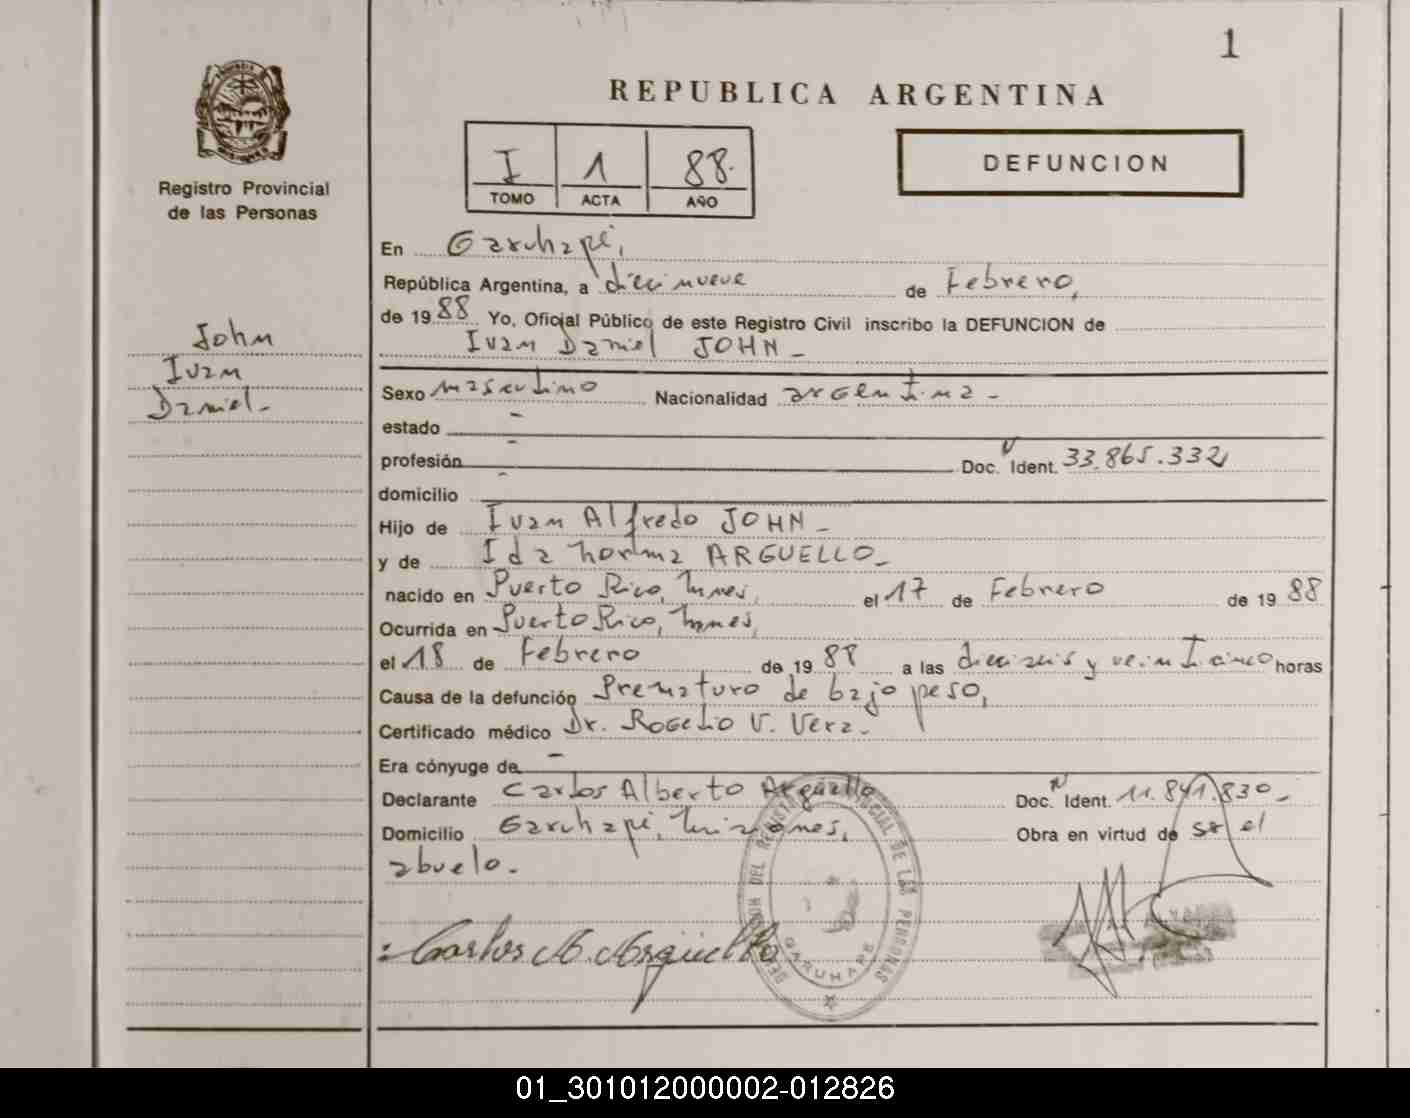 1
REPUBLICA ARGENTINA
Registro Provincial
de las Personas
I 1 88.
TOMO ACTA AÑO
DEFUNCION
En Garuhapé,
República Argentina, a diecinueve de Febrero,
de 1988 Yo, Oficial Público de este Registro Civil inscribo la DEFUNCION de
Ivan Daniel JOHN -
John
Ivan
Daniel.-
Sexo masculino Nacionalidad argentina -
estado -
profesión - Doc. Ident. 33.865.332
domicilio -
Hijo de Ivan Alfredo JOHN -
y de Ida Norma ARGUELLO -
nacido en Puerto Rico, Mnes, el 17 de Febrero de 1988
Ocurrida en Puerto Rico, Mnes,
el 18 de Febrero de 1988 a las dieciseis y veinticinco horas
Causa de la defunción Prematuro de bajo peso,
Certificado médico Dr. Rogelio V. Vera -
Era cónyuge de -
Declarante Carlos Alberto Argüello Doc. Ident. 11.841.830 -
Domicilio Garuhapé, Misiones, Obra en virtud de ser el
abuelo.-
Carlos A. Argüello
DEL REGISTRO DE LAS PERSONAS
GARUHAPE
01_301012000002-012826